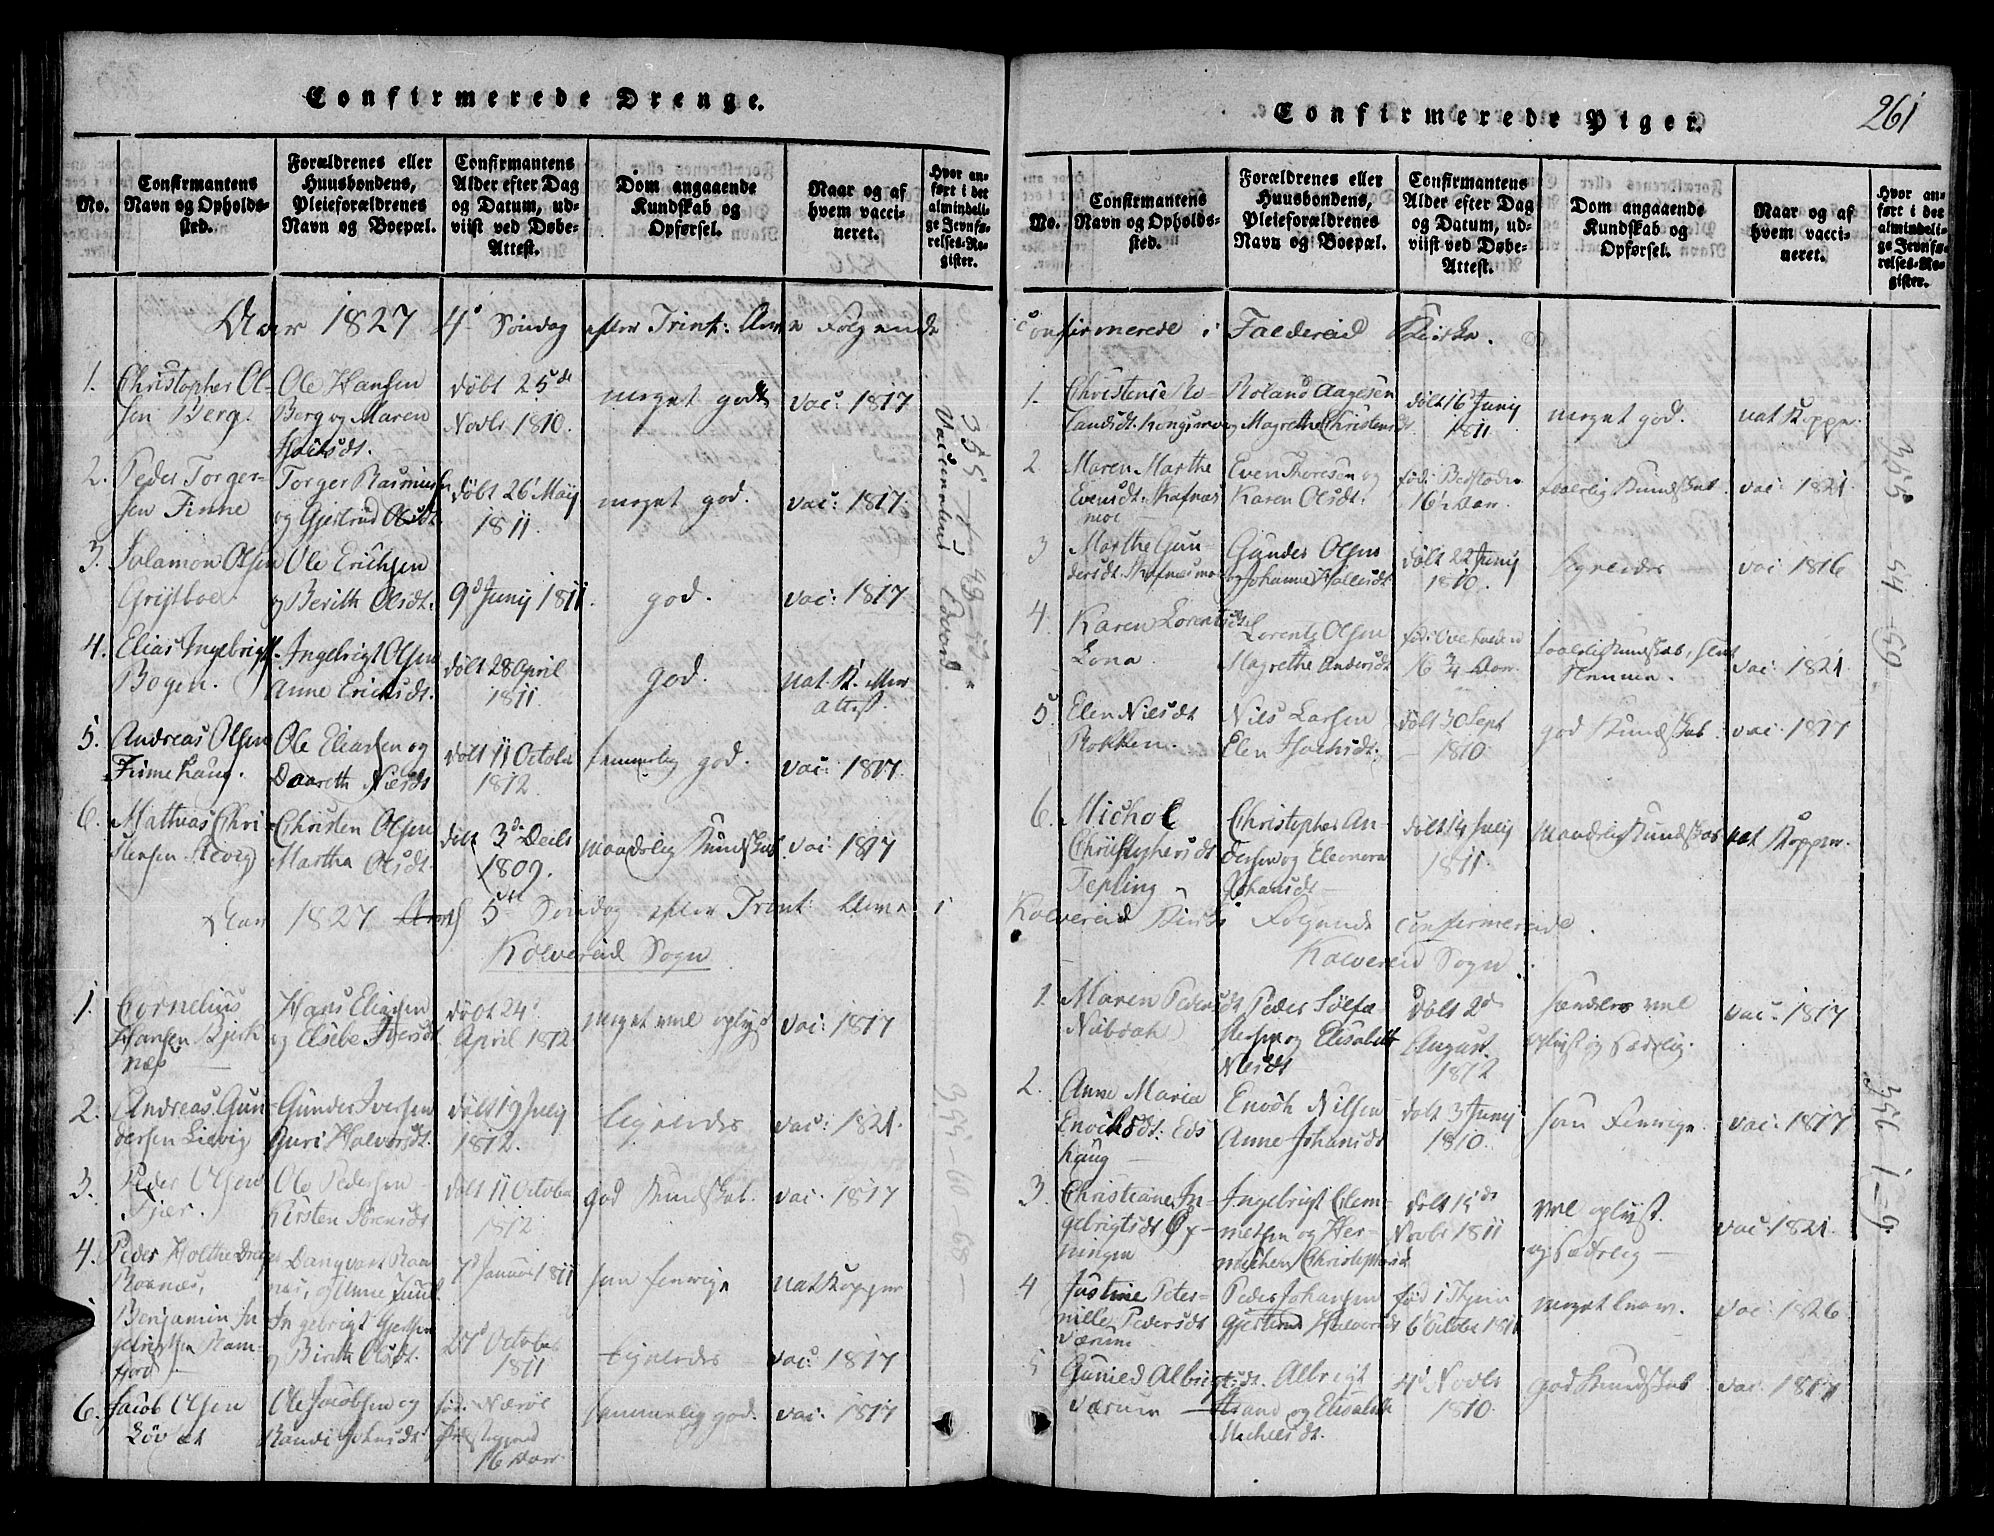 Confirmerede Drenge.
No.
Confirmantens
Navn og Opholds-
sted.
Forældrenes eller
Huusbondens,
Pleieforældrenes
Navn og Boepæl.
Confirmantens
Alder efter Dag
og Datum, ud-
viist ved Døbe-
Attest.
Dom angaaende
Kundskab og
Opførsel.
Naar og af
hvem vacci-
neret.
Hvor an-
ført i det
almindeli-
ge Jevnfø-
relses-Re-
gister.
Aar 1827 4de Søndag efter Trinit: Følgende
1.
Christopher Ol-
sen Berg.
Ole Hansen
Berg og Maren
døbt 25de
Novbr 1810.
meget godt
vac: 1817
2.
Peder Torger-
sen Finne
Torger Rasmussen
og Gjertrud Olsdt
døbt 26 Maij
1811.
meget god.
vac: 1817.
3.
Salamon Olsen
Ole Erichsen
og Berith Olsdt.
9d Junij 1811.
god.
vac: 1817
4.
Elias Ingebrigts.
Bogen.
Ingebrigt Olsen
Anne Erichsdt.
døbt 28 April
1811.
god.
nat. K.
attest.
5.
Andreas Olsen
Finne haug.
Ole Eliassen og
Daareth Nielsdt
døbt 11 October
1812.
temmelig god.
vac: 1817.
6.
Mathias Chri-
stensen
Christen Olsen
Martha Olsdt.
døbt 3de Decbr
1809.
maadelig Kundskab
vac: 1817
355 – fra 48 – 53.
Aar 1827 5te Søndag efter Trinit: i
Kolvereid Sogn
1.
Cornelius
Hansen Bjerk
næs
Hans Eliasen
og Elsebe Iversdt
døbt 24d
April 1812
meget vel oplyst
vac: 1817
2.
Andreas Gun-
dersen Lievig
Gunder Iversen
Guri Halvorsdt.
døbt 19 Julij
1812.
ligeledes
vac: 1821.
3.
Peder Olsen
Fjær.
Ole Pedersen
Kirsten Sørensdt
døbt 11 October
1812
god Kundskab.
vac: 1817
4.
Peder Holthe
Ramnæs,
7d Januar 1811
nat Kopper
Benjamin In-
gebrigtsen Ram-
fjord
Ingebrigt
og Birith Olsdt.
27d October
1811
ligeledes
vac: 1817
6.
Jacob Olsen
Ole Jacobsen og
Randi Johnsdt
fød. Nærøe
Præstegjeld
16 Aar
temmelig god.
vac: 1817
355 – 60 – 68 –
Confirmerede Piger.
261
No.
Confirmantens
Navn og Opholds-
sted.
Forældrenes eller
Huusbondens,
Pleieforældrenes
Navn og Boepæl.
Confirmantens
Alder efter Dag
og Datum, ud-
viist ved Døbe-
Attest.
Dom angaaende
Kundskab og
Opførsel.
Naar og af
hvem vacci-
neret.
Hvor an-
ført i det
almindeli-
ge Jevnfø-
relses-Re-
gister.
confirmerede i Foldereid Kirke.
1.
Christense Ro-
landsdt. Kongsmoe
Roland Aagesen
og Magrethe Christensdt
døbt 16 Junij
1811
meget god.
nat Kopper
2
Maren Marthe
Evensdt.
moe
Even Thoresen og
Karen Olsdt.
16 Aar.
Kundskab
vac: 1821.
3
Marthe Gun-
dersdt.
Gunder Olsen
og Johanne
døbt 22 Junij
1810.
ligeledes
vac: 1816
4.
Karen Lorentsdt
Lona.
Lorents Olsen
Magrethe Andersdt
16 3/4 Aar.
Kundskab,
Nemme.
vac: 1821
5
Elen Nielsdt
Rokken.
Nils Larsen
Elen
døbt 30 Sept
1810.
god Kundskab
vac: 1817
6.
Michol
Christophersdt
Tepling
Christopher An-
dersen og Eleonora
Johansdt
døbt 14 Julij
1811.
maadelig Kundskab
nat Kopper.
355 54 – 59
Kolvereid Kirke følgende confirmerede.
Kolvereid Sogn
1.
Maren Pedersdt
Nubdahl
Peder
og Elisabeth
Nilsdt
døbt 2d
August.
1812
særdeles vel
oplyst og sædelig.
vac: 1817
2.
Anne Maria
Enochsdt: Eds
haug
Enoch Nilsen
Anne Johansdt
døbt 3 Junij
1810.
som Forrige.
vac: 1817
3
Christiane In-
gebrigtsdt Øx-
ningen
Ingebrigt Clem-
metsen og Her-
michen Christophersdt
døbt 15de
Novbr 1811
vel oplyst.
og sædelig
vac: 1821.
4
Justine Peter-
nille Pedersdt
Værum
Peder Johansen
Gjertrud Halvorsdt
fød i
6 October 1811
meget
vac: 1826
5
Gunild Albrigtsdt.
Værum
Albrigt
Strand og Elisabeth
Michelsdt.
4d Novbr
1810.
god Kundskab
vac: 1817
356 – 1 – 9.